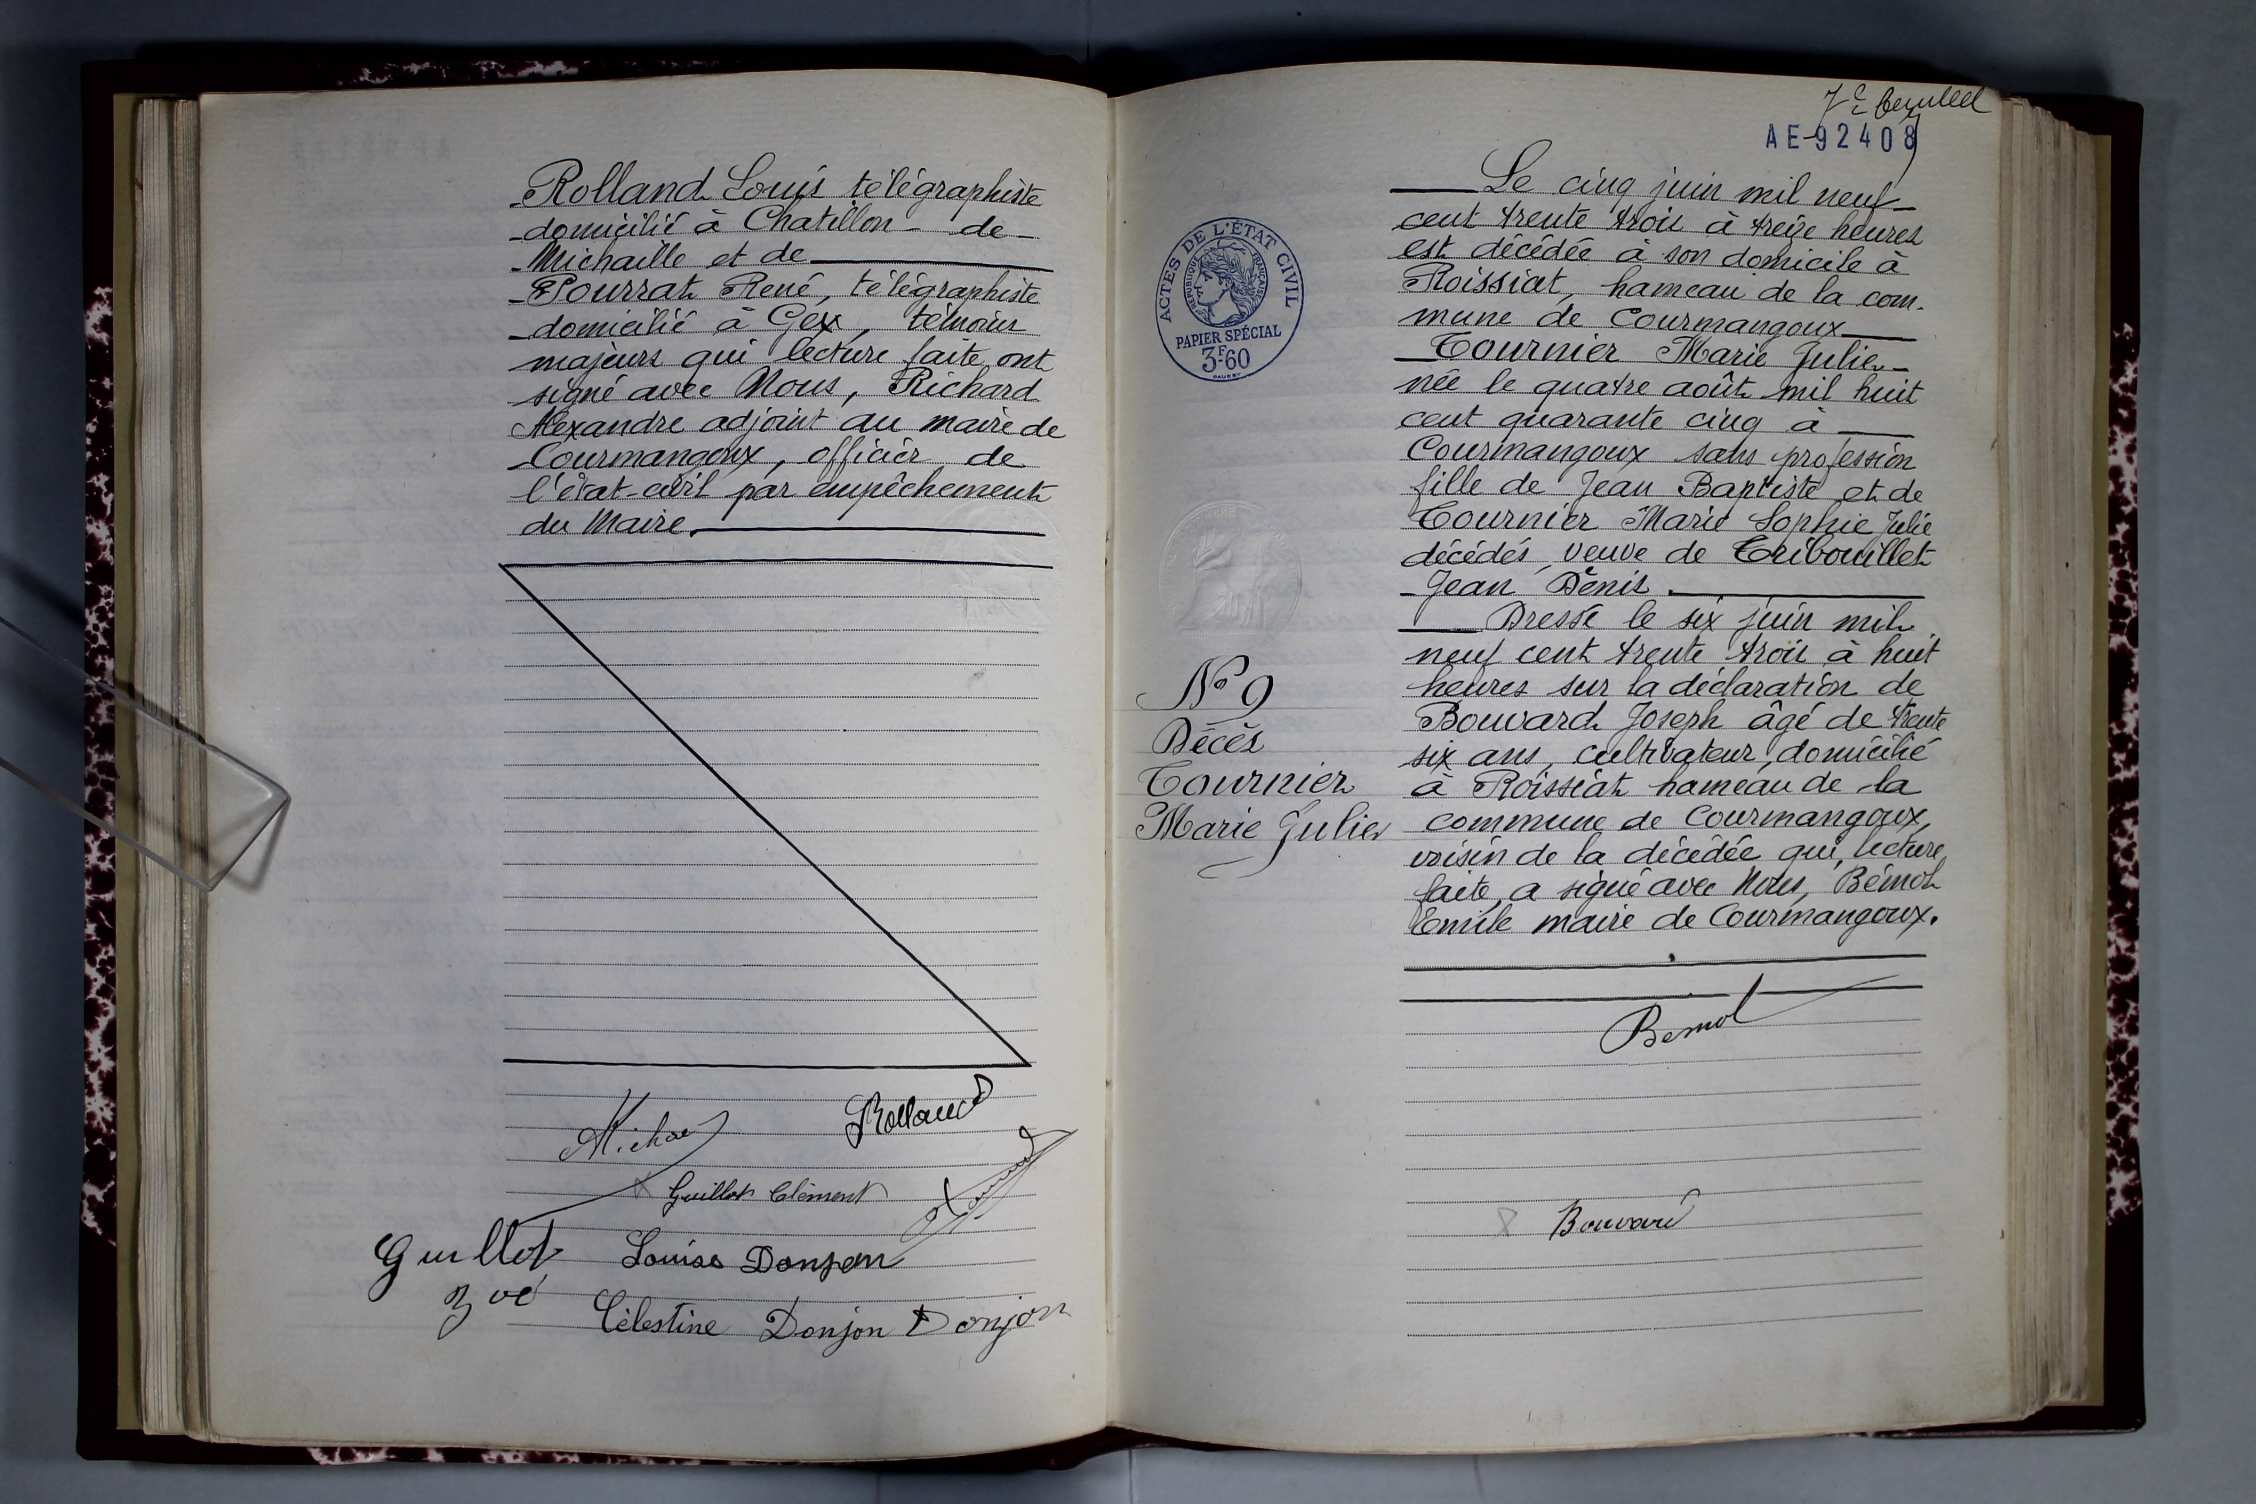 Rolland Louis télégraphiste
domicilié à Chatillon - de -
Michaille et de
Pourrat René, télégraphiste
domicilié à Gex, témoins
majeurs qui lecture faite ont
signé avec Nous, Richard
Alexandre adjoint au maire de
Courmangoux, officier de
l'état-civil par empêchement
du Maire.
Rolland
Guillot Clément
Guillot
Zoé
Louise Donjon
Célestine Donjon Donjon
AE-92408
ACTES DE L'ÉTAT CIVIL
RÉPUBLIQUE FRANÇAISE
PAPIER SPÉCIAL
3F.60
Le cinq juin mil neuf
cent trente trois à treize heures
est décédée à son domicile à
Roissiat, hameau de la com-
mune de Courmangoux
Tournier Marie Julie
née le quatre août mil huit
cent quarante cinq à
Courmangoux sans profession
fille de Jean Baptiste et de
Tournier Marie Sophie Julie
décédés, veuve de Tribouillet
Jean Denis.
Dressé le six juin mil
neuf cent trente trois à huit
heures sur la déclaration de
Bouvard Joseph âgé de trente
six ans, cultivateur, domicilié
à Roissiat hameau de la
commune de Courmangoux,
voisin de la décédée qui, lecture
faite, a signé avec Nous, Bémol
Emile maire de Courmangoux.
N° 9
Décès
Tournier
Marie Julie
Bémol
Bouvard